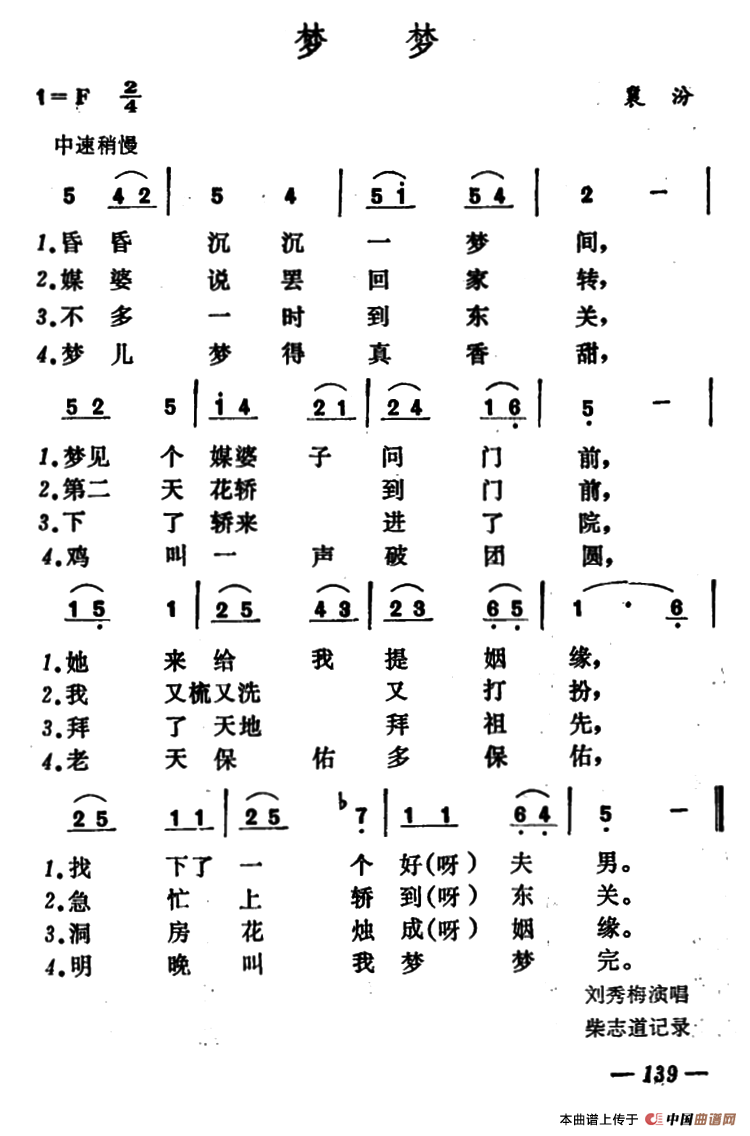 梦 梦
1=F 2/4 襄汾
中速稍慢
5 42 | 5 4 | 5i 54 | 2 — |
1.昏昏 沉沉一 梦 间,
2.媒婆 说罢回 家 转,
3.不多 一时到 东 关,
4.梦儿 梦得真 香 甜,
52 5 | i4 21 | 24 16 | 5 — |
1.梦见 个 媒婆 子 问 门 前,
2.第二 天 花轿 到 门 前,
3.下 了 轿来 进 了 院,
4.鸡 叫 一 声 破 团 圆,
15 1 | 25 43 | 23 65 | 1 · 6 |
1.她 来 给 我 提 姻 缘,
2.我 又梳又洗 又 打 扮,
3.拜 了 天地 拜 祖 先,
4.老 天 保 佑 多 保 佑,
25 11 | 25 ♭7 | 11 64 | 5 — ‖
1.找 下了 一 个 好(呀) 夫 男。
2.急 忙 上 轿 到(呀) 东 关。
3.洞 房 花 烛 成(呀) 姻 缘。
4.明 晚 叫 我 梦 梦 完。
刘秀梅演唱
柴志道记录
— 139 —
本曲谱上传于 中国曲谱网